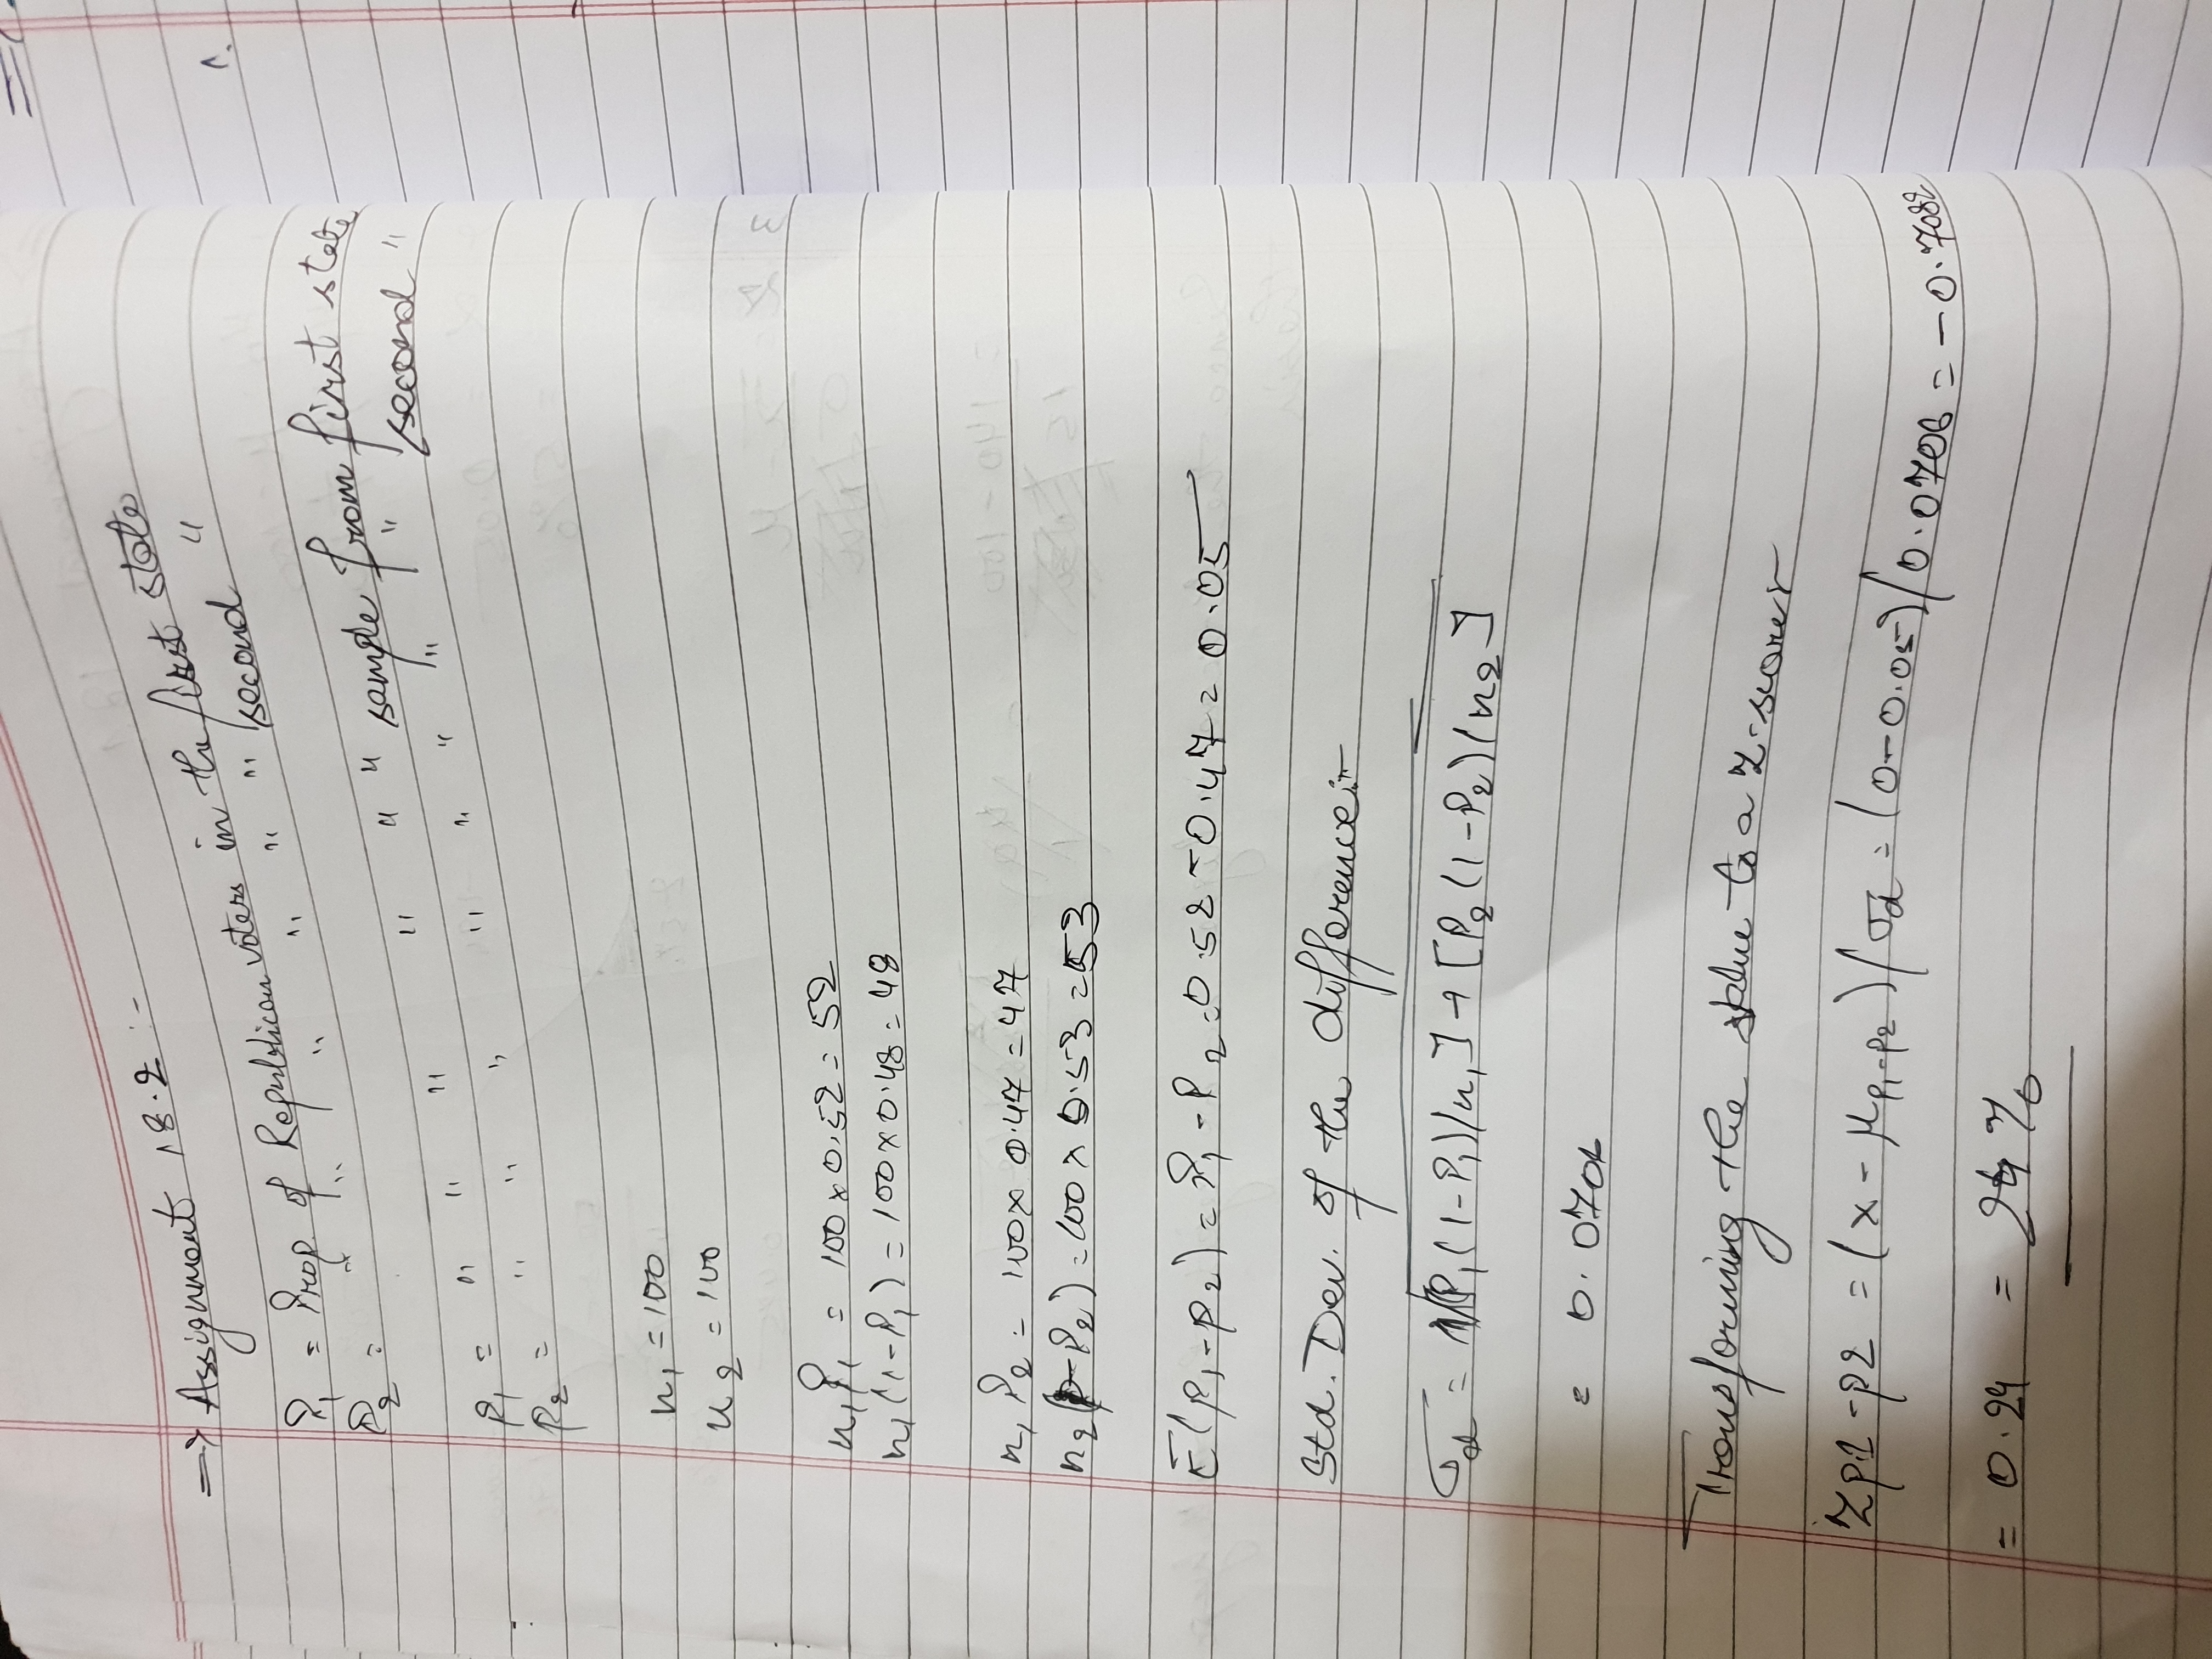 => Assignment 18.2 :-
P₁ = Prop. of Republican voters in the first state
P₂ = " " " " " " second "
p₁ = " " " " " " sample from first state
p₂ = " " " " " " " " second "
n₁ = 100
n₂ = 100
n₁P₁ = 100 x 0.52 = 52
n₁(1-P₁) = 100 x 0.48 = 48
n₁P₂ = 100 x 0.47 = 47
n₂(1-P₂) = 100 x 0.53 = 53
E(p₁-p₂) = P₁ - P₂ = 0.52 - 0.47 = 0.05
Std. Dev. of the difference:-
σd = √P₁(1-P₁)/n₁] + [P₂(1-P₂)/n₂]
= 0.0706
Transforming the value to a z-score
Zp1-p2 = (x - μp₁-p₂)/σd = (0-0.05)/0.0706 = -0.7082
= 0.24 = 24%